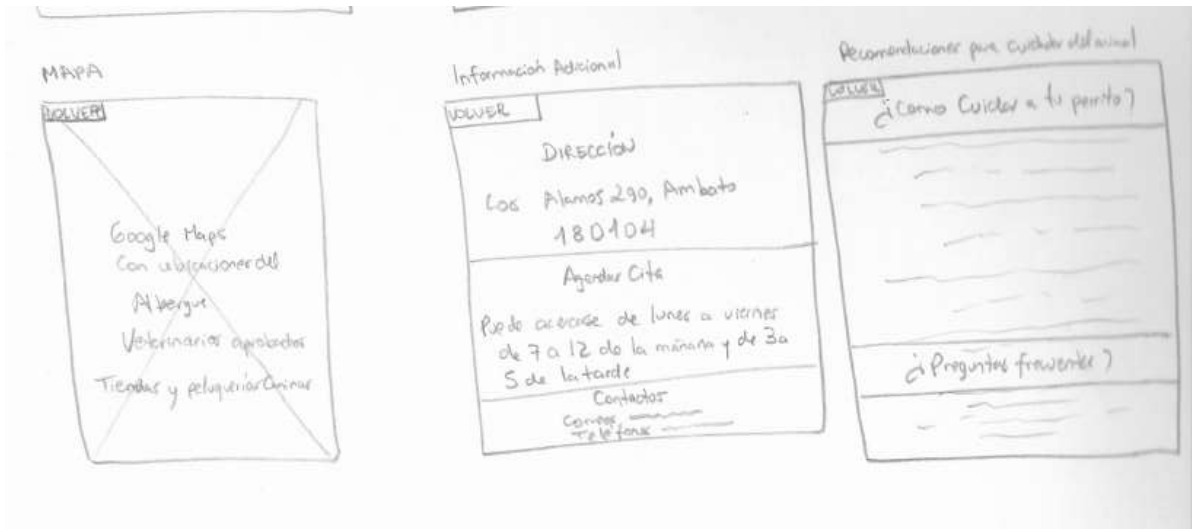 MAPA
VOLVER
Google Maps
Con ubicaciones del
Albergue
Veterinarios aprobados
Tiendas y peluquerias Caninas
Información Adicional
VOLVER
DIRECCIÓN
Los Alamos 290, Ambato
180104
Agendar Cita
Puede acercase de lunes a viernes
de 7 a 12 de la mañana y de 3 a
5 de la tarde
Contactos
Correos
Teléfonos
Recomendaciones para cuidado del animal
VOLVER
¿Como Cuidar a tu perrito?
¿Preguntas frecuentes?